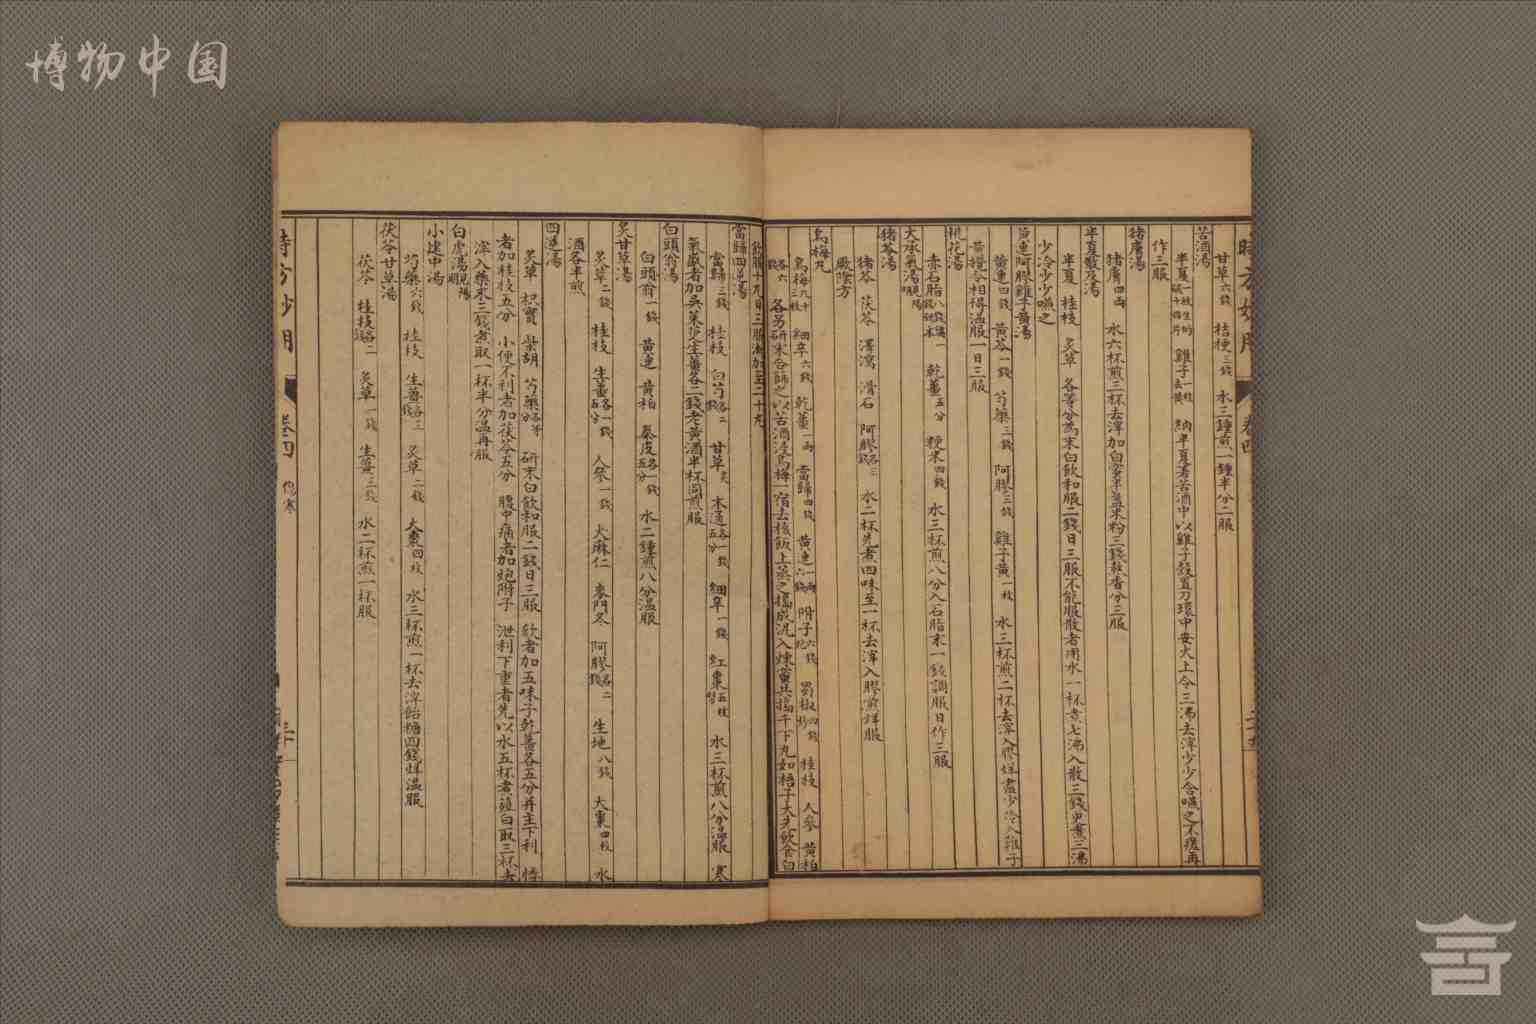 博物中国
甘草六錢 桔梗三錢 水三鍾煎一鍾半分二服
苦酒湯
半夏一枚生的破十四片 雞子一枚去黃 納半夏著苦酒中以雞子殼置刀環中安火上令三沸去滓少少含嚥之不瘥再
作三服
猪膚湯
猪膚四兩 水六杯煎三杯去滓加白蜜半盞米粉三錢熬香分三服
半夏散及湯
半夏 桂枝 炙草 各等分為末白飲和服二錢日三服不能服散者用水一杯煮七沸入散三錢更煮三沸
少冷少少嚥之
黃連阿膠雞子黃湯
黃連四錢 黃芩一錢 芍藥二錢 阿膠三錢 雞子黃一枚 水三杯煎二杯去滓入膠烊盡少冷入雞子
黃攪令相得溫服一日三服
桃花湯
赤石脂 乾薑五分 粳米四錢 水三杯煎八分入石脂末一錢調服日作三服
大承氣湯見陽明
猪苓湯
猪苓 茯苓 澤瀉 滑石 阿膠各三錢 水二杯先煮四味至一杯去滓入膠煎烊服
厥陰方
烏梅丸
烏梅九十三枚 細辛六錢 乾薑一兩 當歸四錢 黃連一兩六錢 附子六錢炮 蜀椒四錢炒 桂枝 人參 黃柏
各六錢 各另研末合篩之以苦酒浸烏梅一宿去核飯上蒸之搗成泥入煉蜜共搗千下丸如梧子大先飲食白
飲服十丸日三服漸加至二十丸
當歸四逆湯
當歸三錢 桂枝 白芍各二錢 甘草炙 木通各一錢五分 細辛一錢 紅棗五枚擘 水三杯煎八分溫服 寒
氣盛者加吳茱萸生薑各二錢老黃酒半杯同煎服
白頭翁湯
白頭翁一錢 黃連 黃柏 秦皮各一錢五分 水二鍾煎八分溫服
炙甘草湯
炙草二錢 桂枝 生薑各一錢五分 人參一錢 火麻仁 麥門冬 阿膠各二錢 生地八錢 大棗四枚 水
酒各半煎
四逆湯
炙草 枳實 柴胡 芍藥各等分 研末白飲和服二錢日三服 欬者加五味子乾薑各五分并主下利 悸
者加桂枝五分 小便不利者加茯苓五分 腹中痛者加炮附子 泄利下重者先以水五杯煮薤白取三杯去
滓入藥末三錢煮取一杯半分溫再服
白虎湯見陽明
小建中湯
芍藥六錢 桂枝 生薑各三錢 炙草二錢 大棗四枚 水三杯煎一杯去滓飴糖四錢烊溫服
茯苓甘草湯
茯苓 桂枝各二錢 炙草一錢 生薑三錢 水二杯煎一杯服
時方妙用 卷四 傷寒